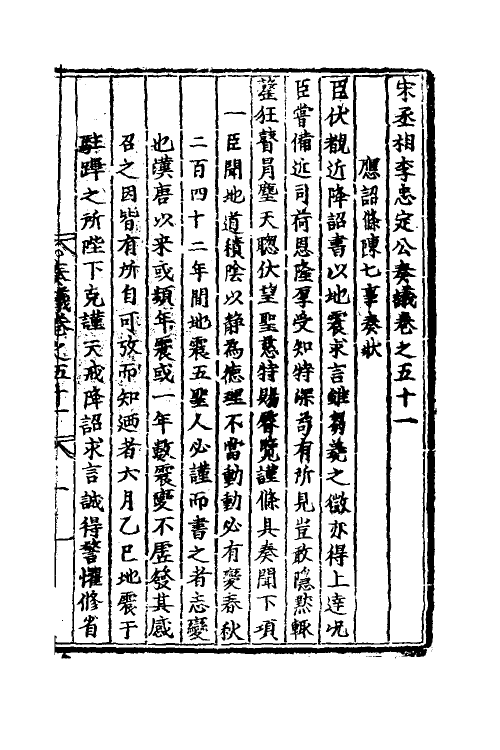 宋丞相李忠定公奏議卷之五十一
應詔條陳七事奏狀
臣伏覩近降詔書以地震求言雖芻蕘之微亦得上達况
臣嘗備近司荷恩隆厚受知特深苟有所見豈敢隱黙輒
罄狂瞽冐瀆天聰伏望聖慈特賜睿覽謹條具奏聞下項
一臣聞地道積陰以静為徳理不當動動必有變春秋
二百四十二年間地震五聖人必謹而書之者志變
也漢唐以来或頻年震或一年數震變不虚發其感
召之因皆有所自可攷而知迺者六月乙巳地震于
駐蹕之所陛下克謹天戒降詔求言誠得警懼修省
奏議卷之五十一
一